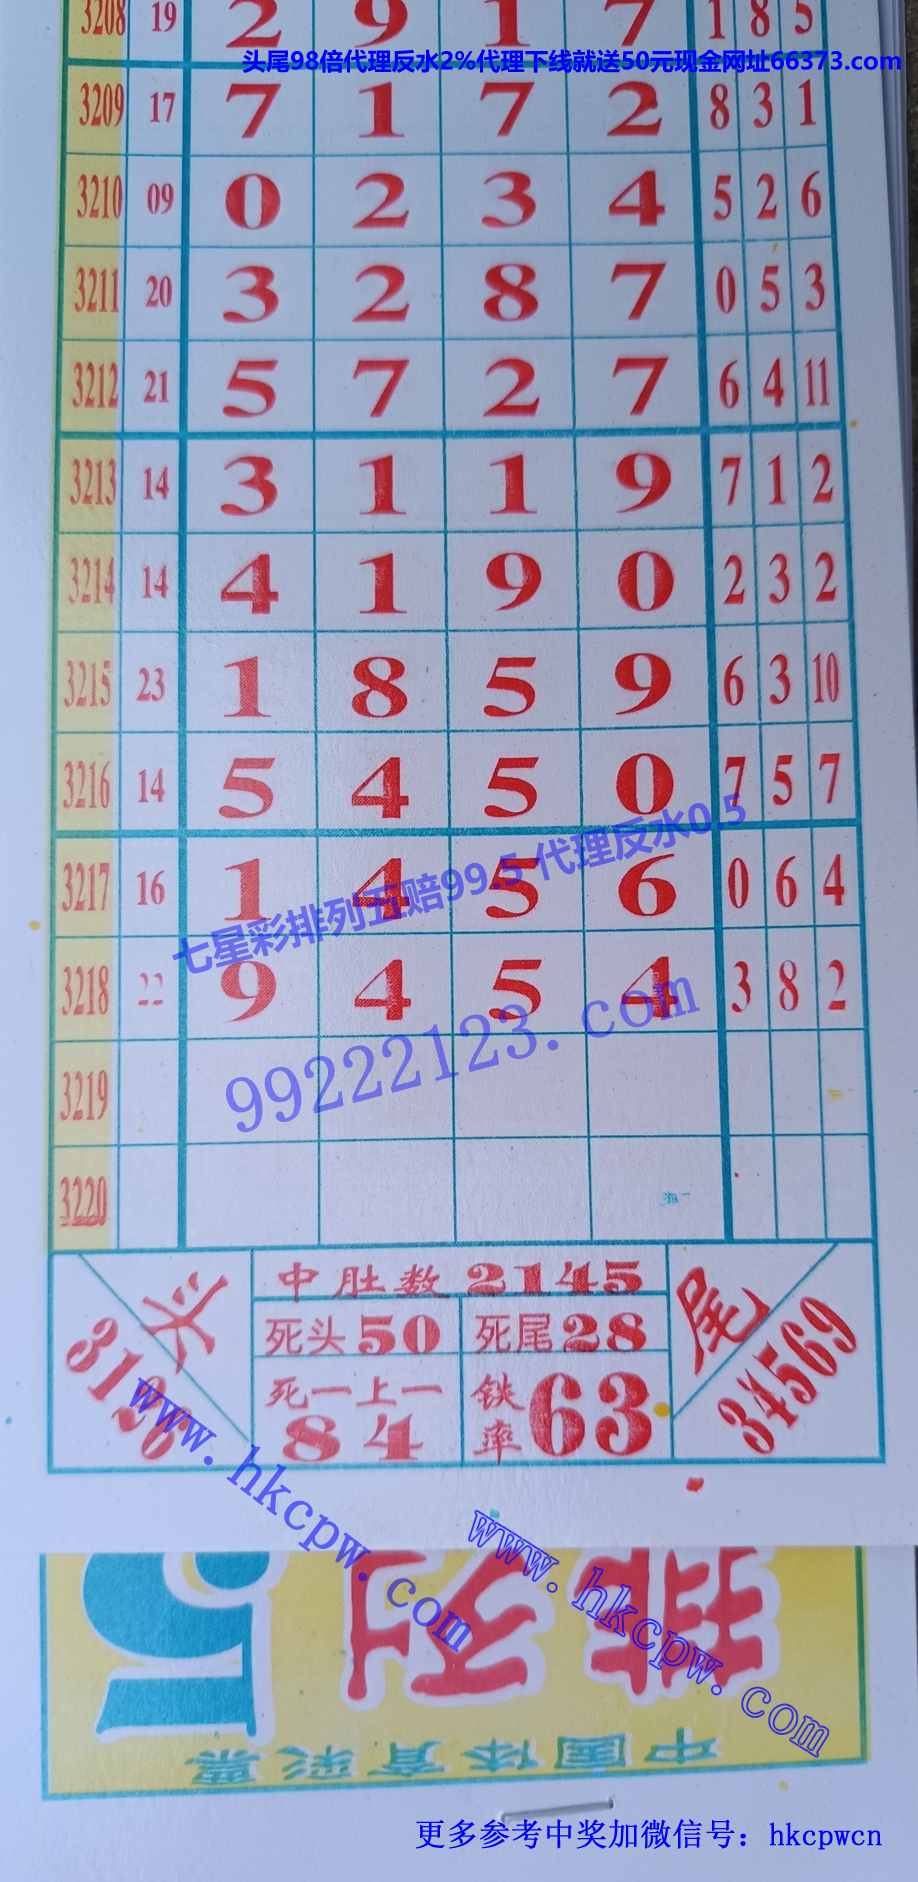 3208 19 2 9 1 7 1 8 5
头尾98倍代理反水2%代理下线就送50元现金网址66373.com
3209 17 7 1 7 2 8 3 1
3210 09 0 2 3 4 5 2 6
3211 20 3 2 8 7 0 5 3
3212 21 5 7 2 7 6 4 11
3213 14 3 1 1 9 7 1 2
3214 14 4 1 9 0 2 3 2
3215 23 1 8 5 9 6 3 10
3216 14 5 4 5 0 7 5 7
3217 16 1 4 5 6 0 6 4
七星彩排列五赔99.5 代理反水0.5
3218 22 9 4 5 4 3 8 2
99222123.com
3219
3220
头 3126
中肚数 2145
死头50
死尾28
死一上一
84
铁率63
尾 34569
www.hkcpw.com
www.hkcpw.com
排列5
中国体育彩票
更多参考中奖加微信号：hkcpwcn